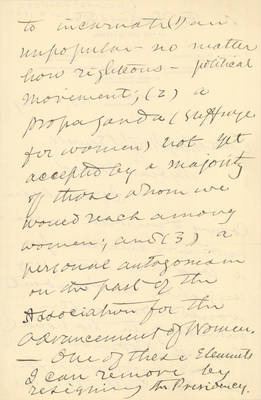 to incarnate (1) an
unpopular - no matter
how righteous - political
movement; (2) a
propaganda (suffrage
for women) not yet
accepted by a majority
of those whom we
would reach among
women; and (3) a
personal antagonism
on the part of the
Association for the
Advancement of Women.
- One of these Elements
I can remove by
resigning the Presidency.